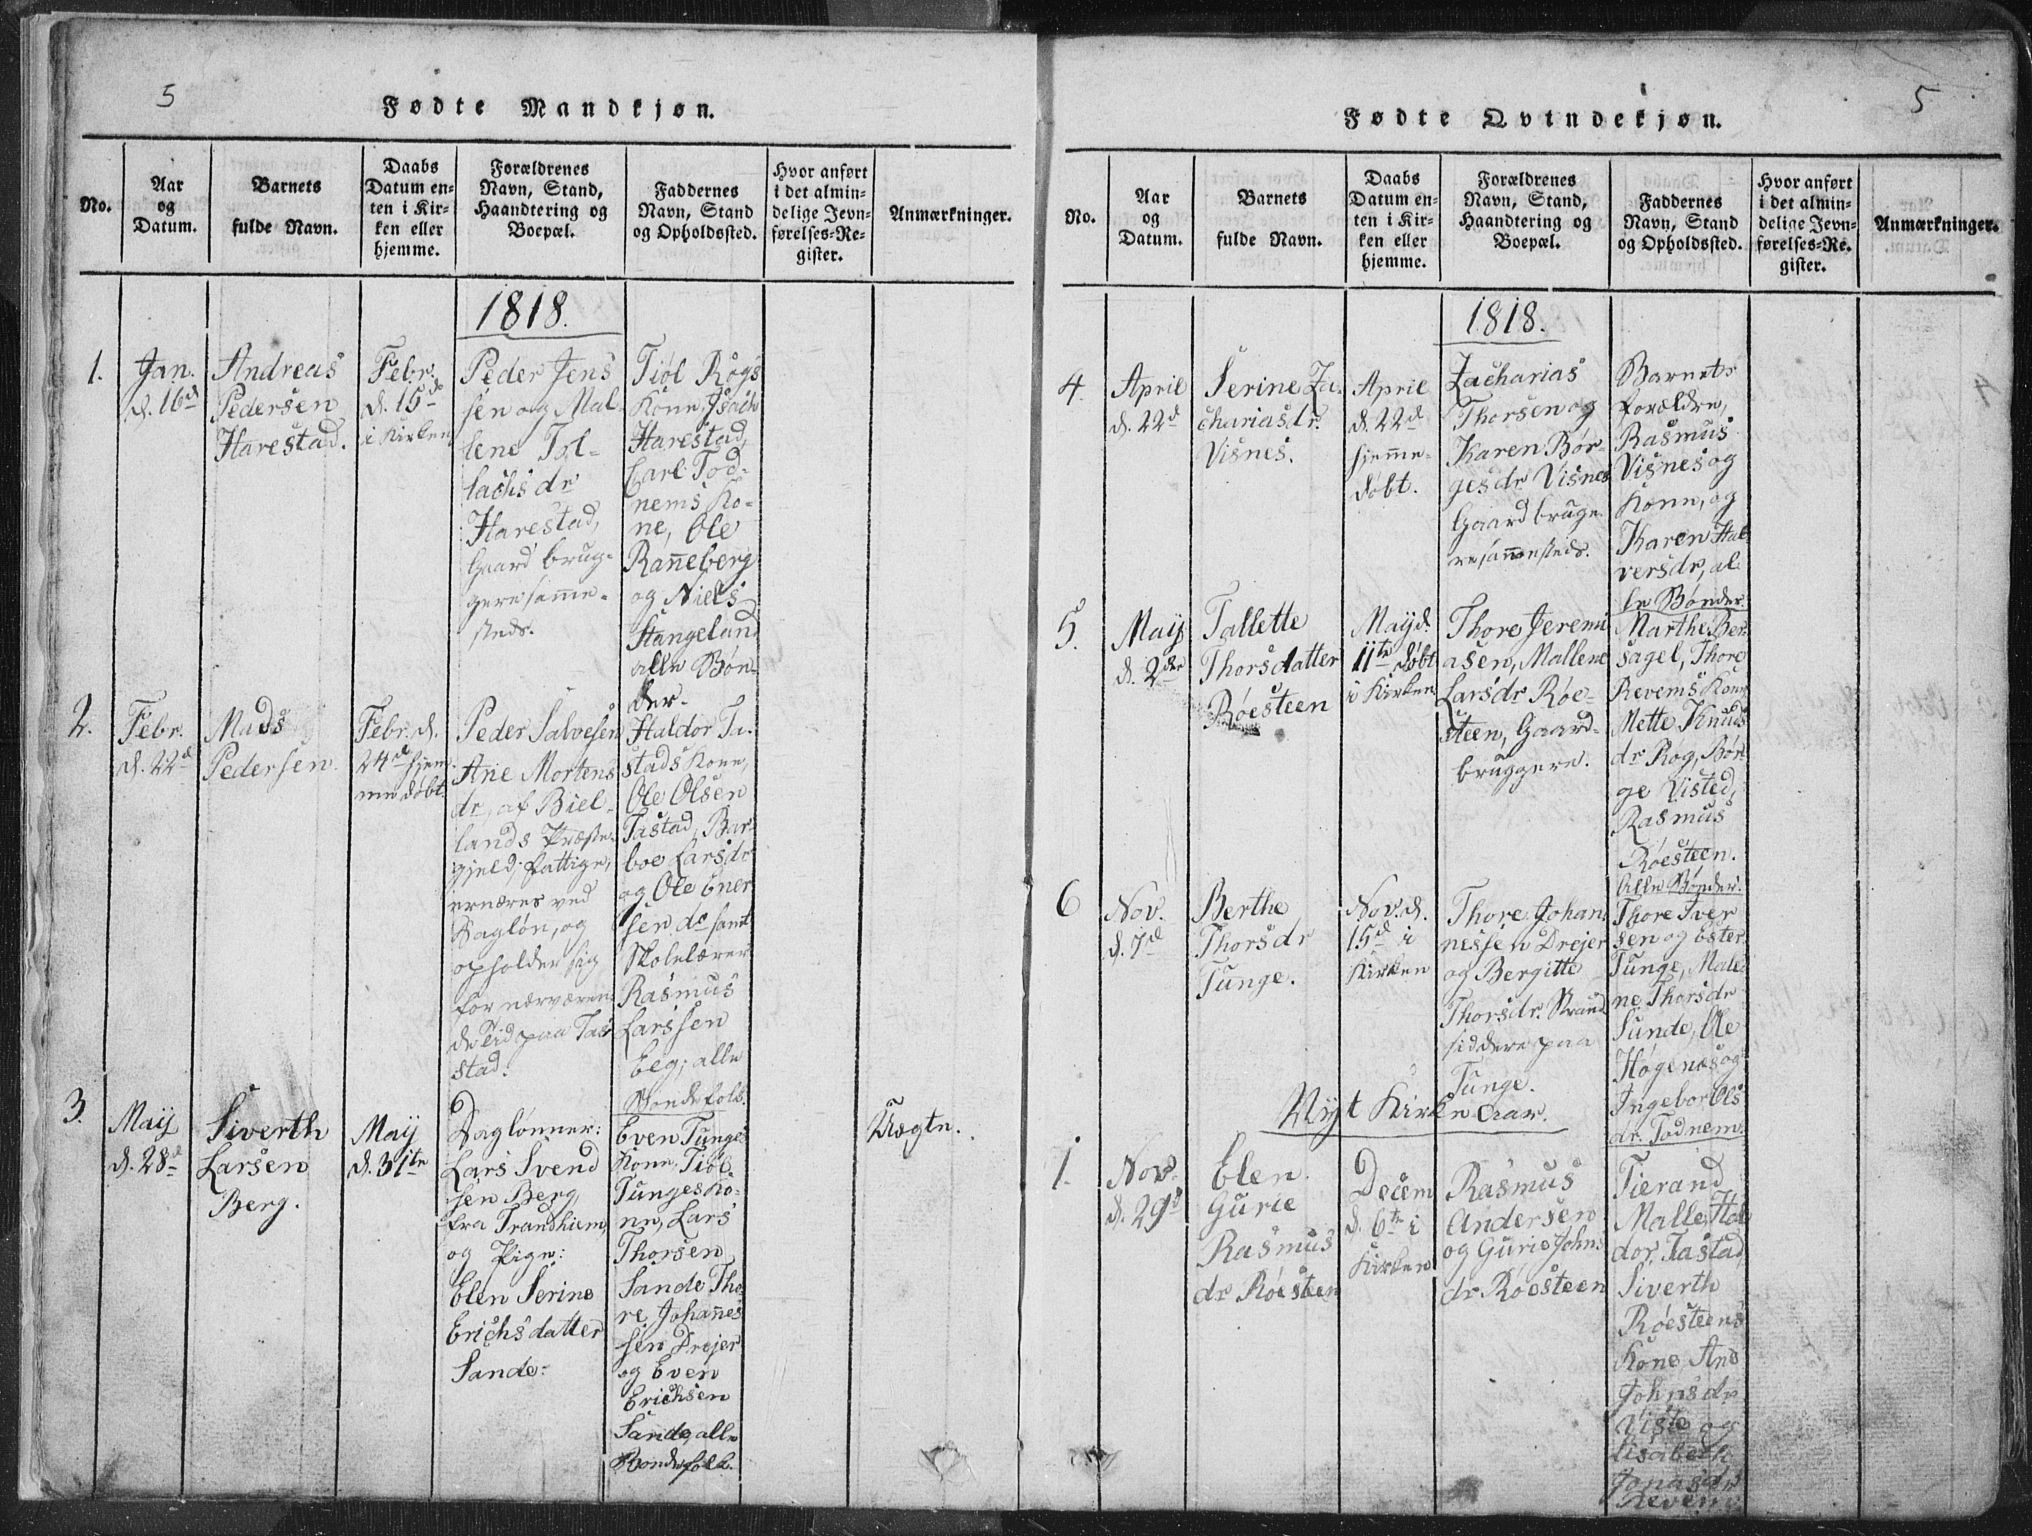 5
Fødte Mandkjøn.
No.
Aar
og
Datum.
Barnets
fulde Navn.
Daabs
Datum en-
ten i Kir-
ken eller
hjemme.
Forældrenes
Navn, Stand,
Haandtering og
Boepæl.
Faddernes
Navn, Stand
og Opholdssted.
Hvor anført
i det almin-
delige Jevn-
førelses-Re-
gister.
Anmærkninger.
1818.
1.
Jan.
d. 16d
Andreas
Pedersen
Harestad.
Febr.
d. 15d
i Kirken
Peder Jens
sen og Mal-
lene Tol-
lachs dr
Harestad,
Gaard brug-
gere samme-
steds.
Tiøl Rogs
Kone, Isach
Harestad,
Carl Tod-
nems Ko-
ne, Ole
Ranneberg
og Niels
Stangeland
alle Bøn-
der.
2.
Febr.
d. 22d
Mads
Pedersen
Febr. d.
24d hjem-
me døbt.
Peder Salvesen
Ane Mortens
dr, af Biel-
lands Præste-
gjeld, fattige,
ernæres ved
Dagløn, og
opholder sig
for nærværen-
de Tid paa Ta-
stad.
Haldor Ta-
stads Kone,
Ole Olsen
Tastad, Bar-
boe Larsdr
og Ole Ener
sen do samt
Skolelærer
Rasmus
Larssen
Eeg, alle
Bondefolk.
3.
May
d. 28d
Siverth
Larsen
Berg.
May
d. 31te
Daglønner:
Lars Svend
sen Berg,
fra Trondhiem,
og Pige:
Elen Serine
Erichsdatter
Sande.
Even Tunges
Kone, Tiøl
Tunges Ko-
ne, Lars
Thorsen
Sande, Tho-
re Johannes
sen Drejer
og Even
Erichsen
Sande, alle
Bondefolk.
Uægte.
5
Fødte Qvindekjøn.
No.
Aar
og
Datum.
Barnets
fulde Navn.
Daabs
Datum en-
ten i Kir-
ken eller
hjemme.
Forældrenes
Navn, Stand,
Haandtering og
Boepæl.
Faddernes
Navn, Stand
og Opholdssted.
Hvor anført
i det almin-
delige Jevn-
førelses-Re-
gister.
Anmærkninger.
1818.
4.
April
d. 22d
Serine Za-
chariasdr.
Visnes.
April
d. 22d
hjemme-
døbt.
Zacharias
Thorsen og
Karen Bør-
gesdr Visnes
Gaardbruge-
re sammesteds.
Barnets
forældre,
Rasmus
Visnes og
Kone, og
Karen Hal
versdr, al-
le Bønder.
5.
May
d. 2den
Tallette
Thorsdatter
Røesteen
May d.
11te døbt
i Kirken
Thore Jeremi
asen, Mallene
Larsdr Røe-
steen, Gaard-
bruggere.
Marthe Ber-
sagel, Thore
Revems Kone
Mette Knuds
dr Rog, Bør-
ge Visted,
Rasmus
Røesteen.
Alle Bønder.
6
Nov.
d. 7d
Berthe
Thorsdr
Tunge.
Nov. d.
15d i
Kirken
Thore Johan-
nessen Drejer
og Bergitte
Thorsdr. Strand
siddere paa
Tunge.
Thore Iver
sen og Ester
Tunge, Male-
ne Thorsdr
Sunde, Ole
Høgenæs og
Ingebor Ols
dr. Todnem.
Nyt Kirke aar.
1.
Nov.
d. 29d
Elen
Gurie
Rasmus
dr Røesteen
Decem
d. 6te i
Kirken
Rasmus
Andersen
og Gurie Johns
dr. Røesteen
Tierand
Malle, Hal
dor Tastad,
Siverth
Røesteens
Kone, Ane
Johnsdr
Viste og
Lisabeth
Jonasdr
Revem.